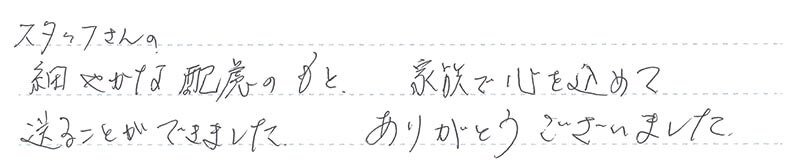 スタッフさんの
細やかな配慮のもと、 家族で心を込めて
送ることができました。 ありがとうございました。